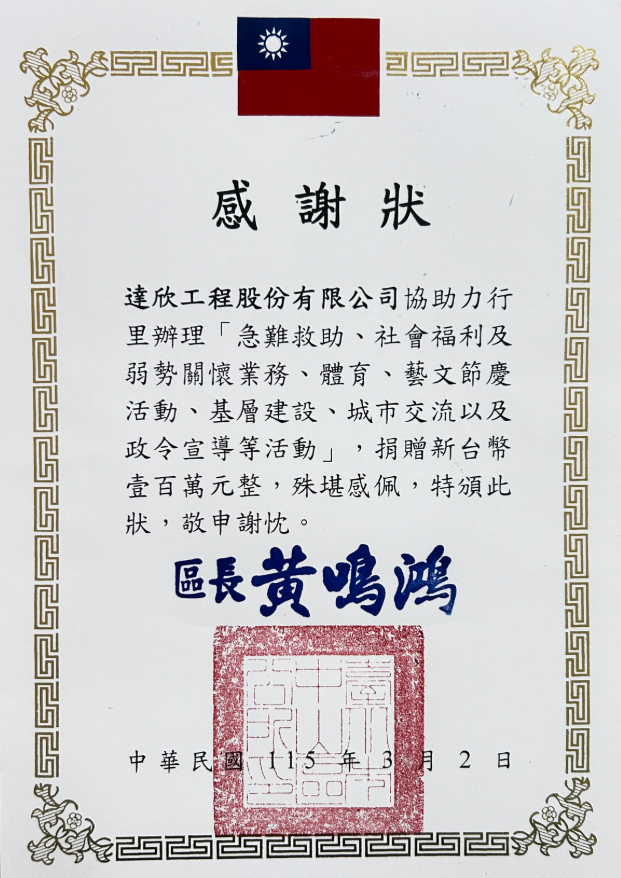 感謝狀
達欣工程股份有限公司協助力行
里辦理「急難救助、社會福利及
弱勢關懷業務、體育、藝文節慶
活動、基層建設、城市交流以及
政令宣導等活動」，捐贈新台幣
壹百萬元整，殊堪感佩，特頒此
狀，敬申謝忱。
區長黃鳴鴻
中華民國 115 年 3 月 2 日